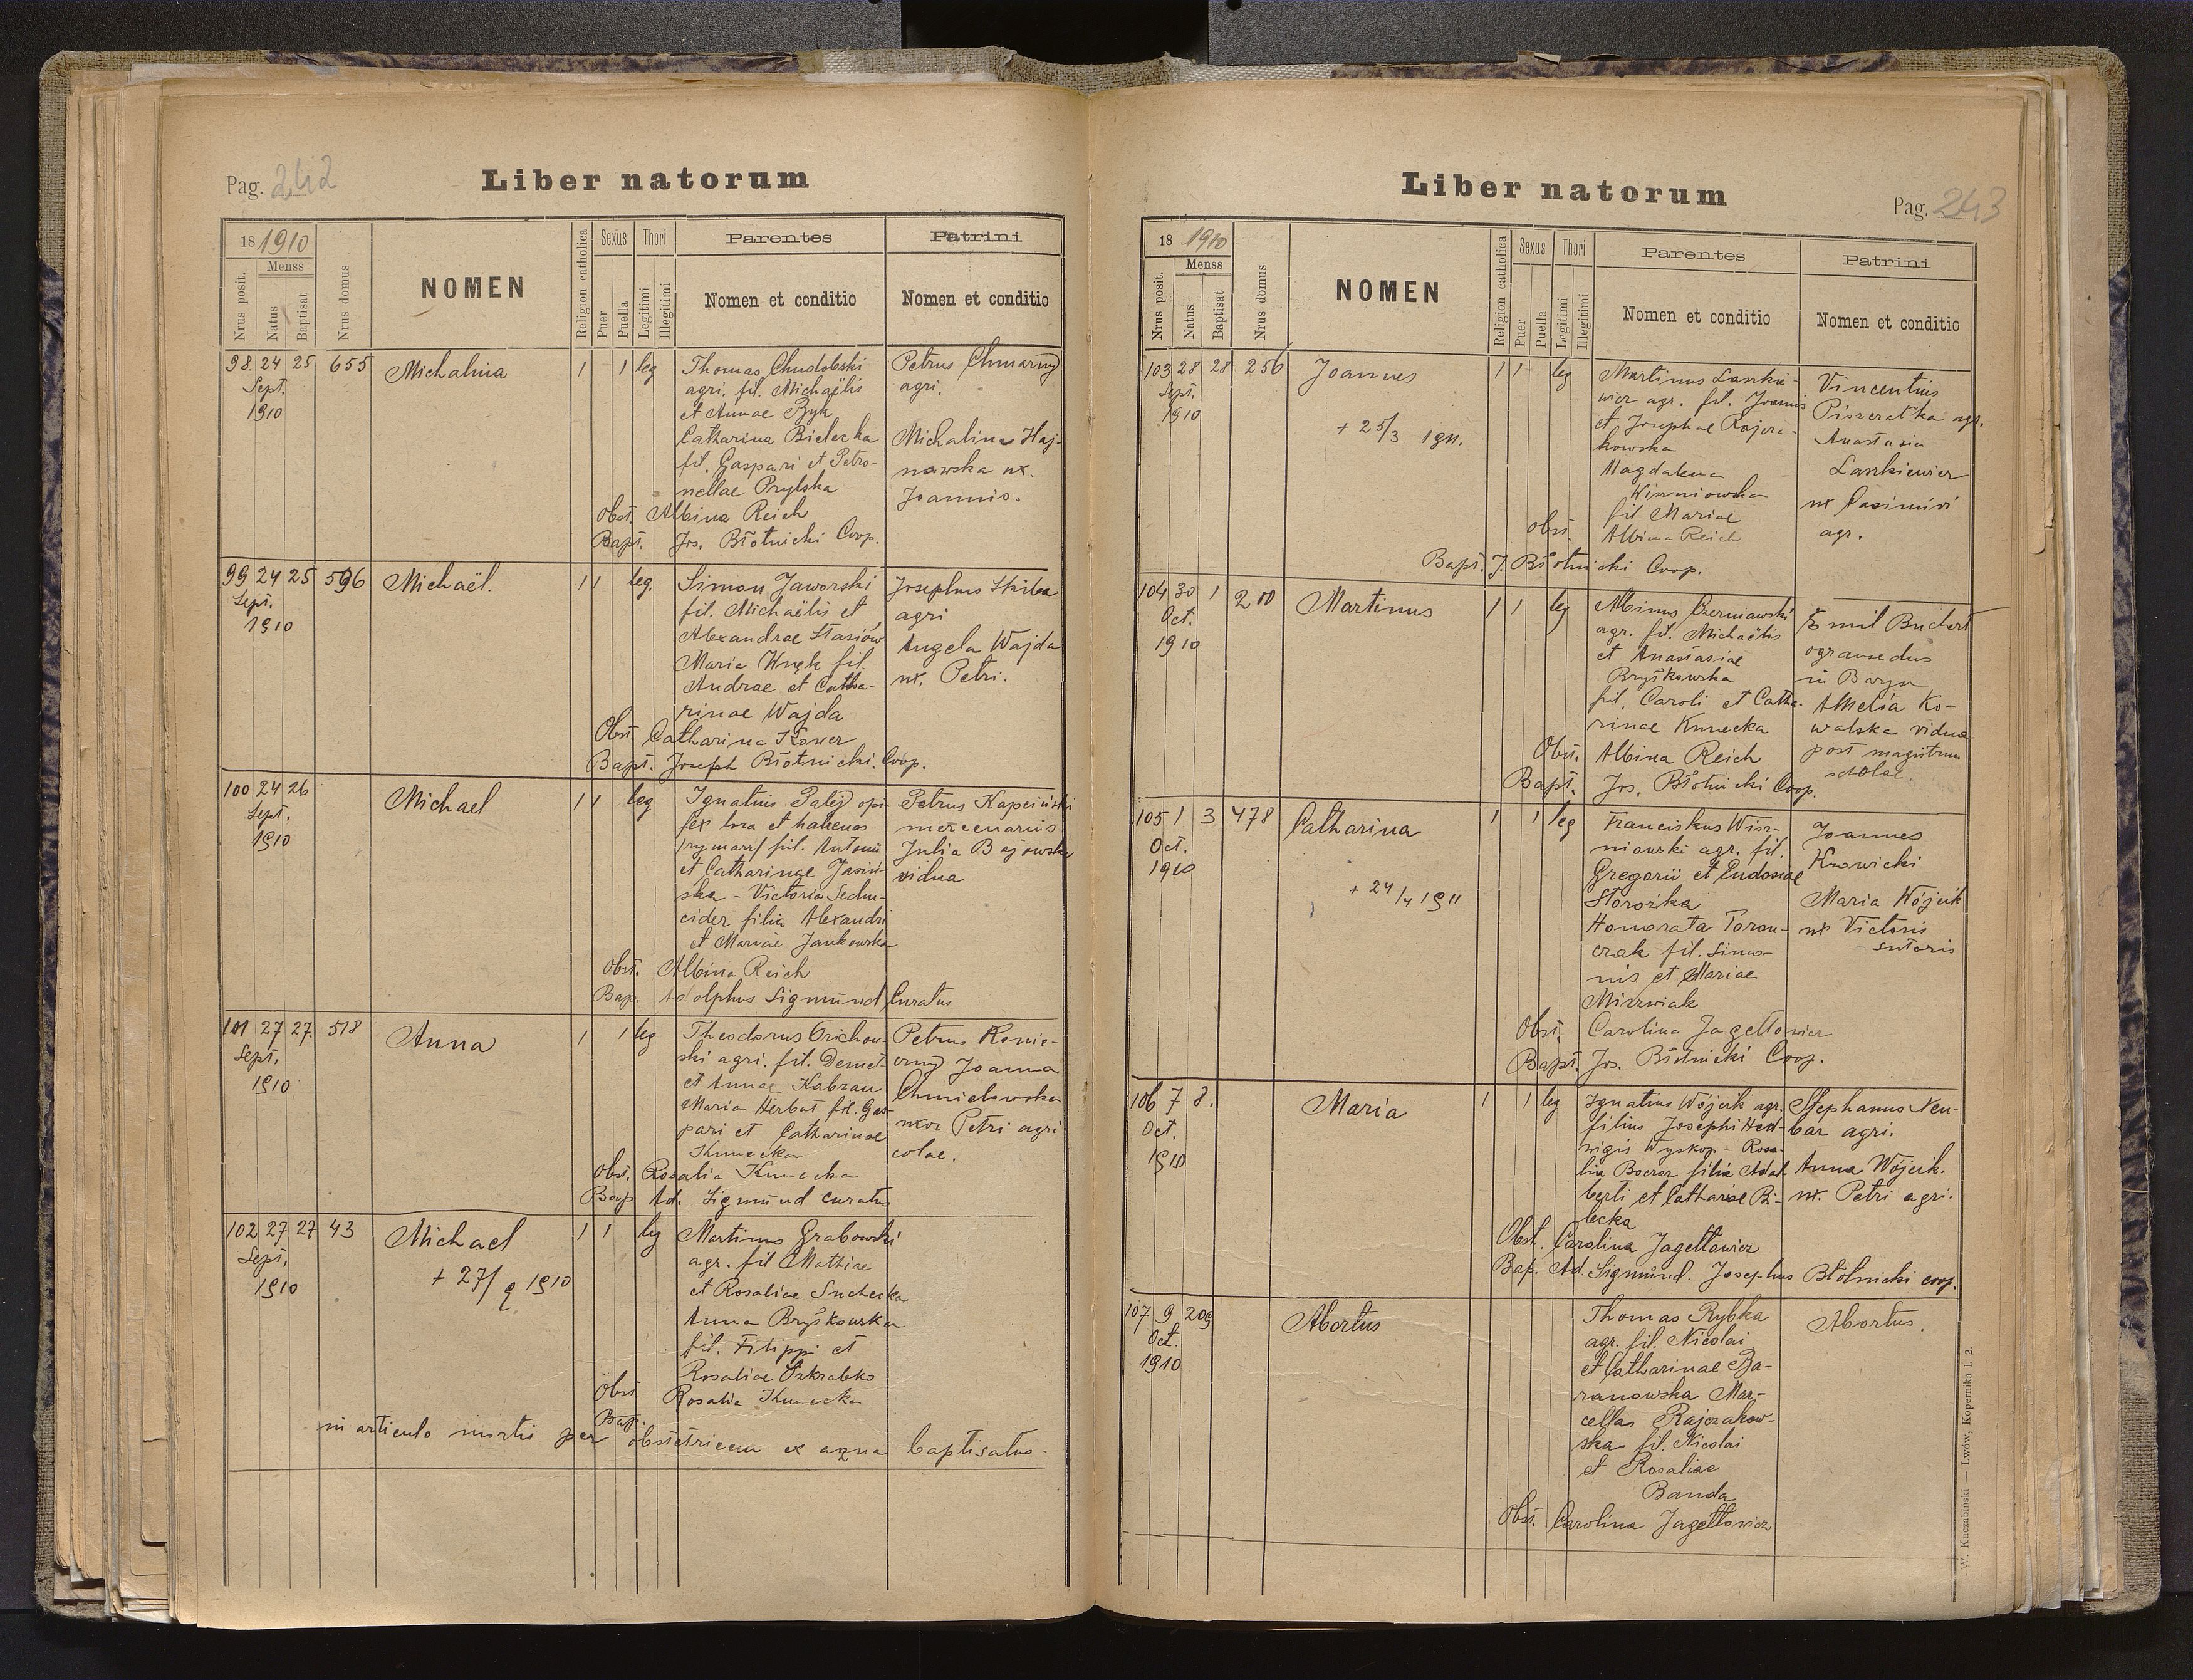 Pag. 242
Liber natorum
18 1910
Menss
Nrus posit.
Natus
Baptisat
Nrus domus
NOMEN
Religion catholica
Sexus
Puer
Puella
Thori
Legitimi
Illegitimi
Parentes
Nomen et conditio
Patrini
Nomen et conditio
98. 24 25 655 Michalina 1 1 leg
Sept.
1910
Thomas Chudobski
agri. fil. Michaëlis
et Annae Zyk
Catharina Bielecka
fil. Gaspari et Petro-
nellae Prylska
Petrus Chmarny
agri.
Michalina Haj-
nawska ux.
Joannis.
Obst. Albina Reich
Bapt. Jos. Błotnicki Coop.
99 24 25 596 Michaël. 1 1 leg.
Sept.
1910
Simon Jaworski
fil. Michaëlis et
Alexandrae Stasiów
Maria Kruk fil.
Andrae et Catha-
rinae Wajda
Josephus Skiba
agri
Angela Wajda
ux. Petri.
Obst. Catharina Kower
Bapt. Joseph Błotnicki. Coop.
100 24 26 Michael 1 1 leg
Sept.
1910
Ignatius Palej opi-
fex lora et habenas
/rymarz/ fil. Antonii
et Catharinae Jasiń-
ska - Victoria Schn-
eider filia Alexandri
et Mariae Jankowska
Petrus Kapciński
mercenarius
Julia Bajowska
vidua
Obst. Albina Reich
Bap. Adolphus Sigmünd Curatus
101 27 27. 518 Anna 1 1 leg
Sept.
1910
Theodorus Orichow-
ski agri. fil. Demet-
et Annae Kabzan
Maria Herbat fil. Gas-
pari et Catharinae
Kunecka
Petrus Konie-
czny Joanna
Chmielowska
uxor Petri agri-
colae.
Obst. Rosalia Kunecka
Bap Ad. Sigmünd curatus
102 27 27 43 Michael 1 1 leg
Sept.
1910
+ 27/9 1910
Martinus Grabowski
agr. fil Mathiae
et Rosaliae Suchecka
Anna Bryśkowska
fil. Filippi et
Rosaliae Szkrabko
Obst Rosalia Kunecka
Bap.
in articulo mortis per obstetricem ex aqua baptisatus.
Liber natorum
Pag. 243
18 1910
Menss
Nrus posit.
Natus
Baptisat
Nrus domus
NOMEN
Religion catholica
Sexus
Puer
Puella
Thori
Legitimi
Illegitimi
Parentes
Nomen et conditio
Patrini
Nomen et conditio
103 28 28 256 Joannes 1 1 leg
Sept.
1910
+ 25/3 1911.
Martinus Laszkie-
wicz agr. fil. Joannis
et Josephae Rajcza-
kowska
Magdalena
Wiszniowska
fil Mariae
Vincentius
Piszczatka agr.
Anastasia
Laszkiewicz
ux Casimiri
agr.
Obst. Albina Reich
Bapt. J. Błotnicki Coop.
104 30 1 210 Martinus 1 1 leg
Oct.
1910
Albinus Czerniawski
agr. fil. Michaëlis
et Anastasiae
Bryśkowska
fil. Caroli et Catha-
rinae Kunecka
Emil Buchert
in Barysz
Amelia Ko-
walska vidua
post magistrum
scholae.
Obst. Albina Reich
Bapt. Jos. Błotnicki Coop.
105 1 3 478 Catharina 1 1 leg
Oct.
1910
+ 24/4 1911
Franciskus Wisz-
niowski agr. fil.
Gregorii et Eudosiae
Storożka
Honorata Toron-
czak fil. Simo-
nis et Mariae
Mizzwiak
Joannes
Krowicki
Maria Wójcik
ux Victoris
sutoris
Obst. Carolina Jagełłowicz
Bapt. Jos. Błotnicki Coop.
106 7 8. Maria 1 1 leg
Oct.
1910
Ignatius Wójcik agr.
filius Josephi Hed-
wigis Wyskop - Rosa-
lia Boczar filia Adal-
berti et Catharinae Bi-
lecka
Stephanus Neu-
bar agri.
Anna Wójcik.
ux. Petri agri.
Obst. Carolina Jagełłowicz
Bap. Ad. Sigmünd. Josephus Błotnicki coop.
107 9 209 Abortus
Oct.
1910
Thomas Rybka
agr. fil. Nicolai
et Catharinae Ba-
ranowska Mar-
cella Rajczakow-
ska fil. Nicolai
et Rosaliae
Banda
Abortus.
Obst. Carolina Jagełłowicz
W. Kuczabiński — Lwów, Kopernika l. 2.